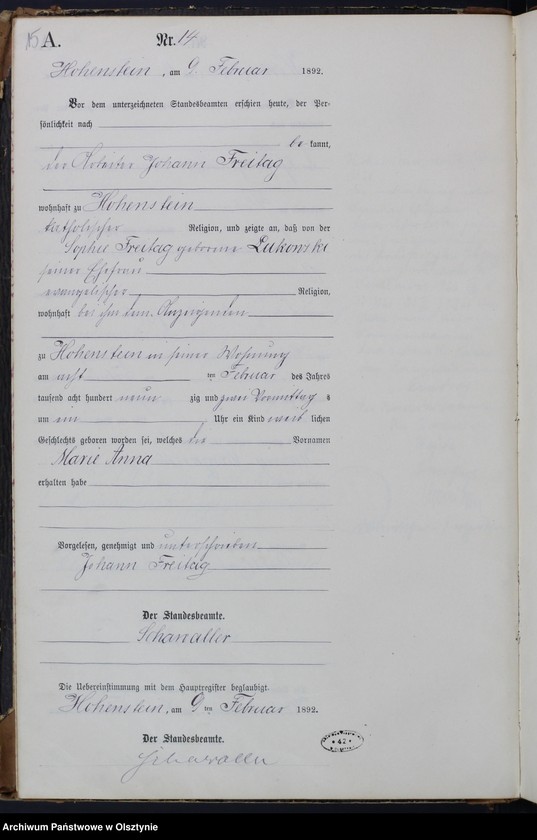 15 A.
Nr. 14
Hohenstein, am 9. Februar 1892.
Vor dem unterzeichneten Standesbeamten erschien heute, der Per-
sönlichkeit nach
be kannt,
der Arbeiter Johann Freitag
wohnhaft zu Hohenstein
katholischer Religion, und zeigte an, daß von der
Sophie Freitag geborene Lukowski
seiner Ehefrau
evangelischer Religion,
wohnhaft bei ihm dem Anzeigenden
zu Hohenstein in seiner Wohnung
am acht ten Februar des Jahres
tausend acht hundert neun zig und zwei Vormittag s
um ein Uhr ein Kind weib lichen
Geschlechts geboren worden sei, welches die Vornamen
Marie Anna
erhalten habe
Vorgelesen, genehmigt und unterschrieben
Johann Freitag
Der Standesbeamte.
Schawaller
Die Uebereinstimmung mit dem Hauptregister beglaubigt.
Hohenstein, am 9 ten Februar 1892.
Der Standesbeamte.
Schawaller
* 47 *
Archiwum Państwowe w Olsztynie